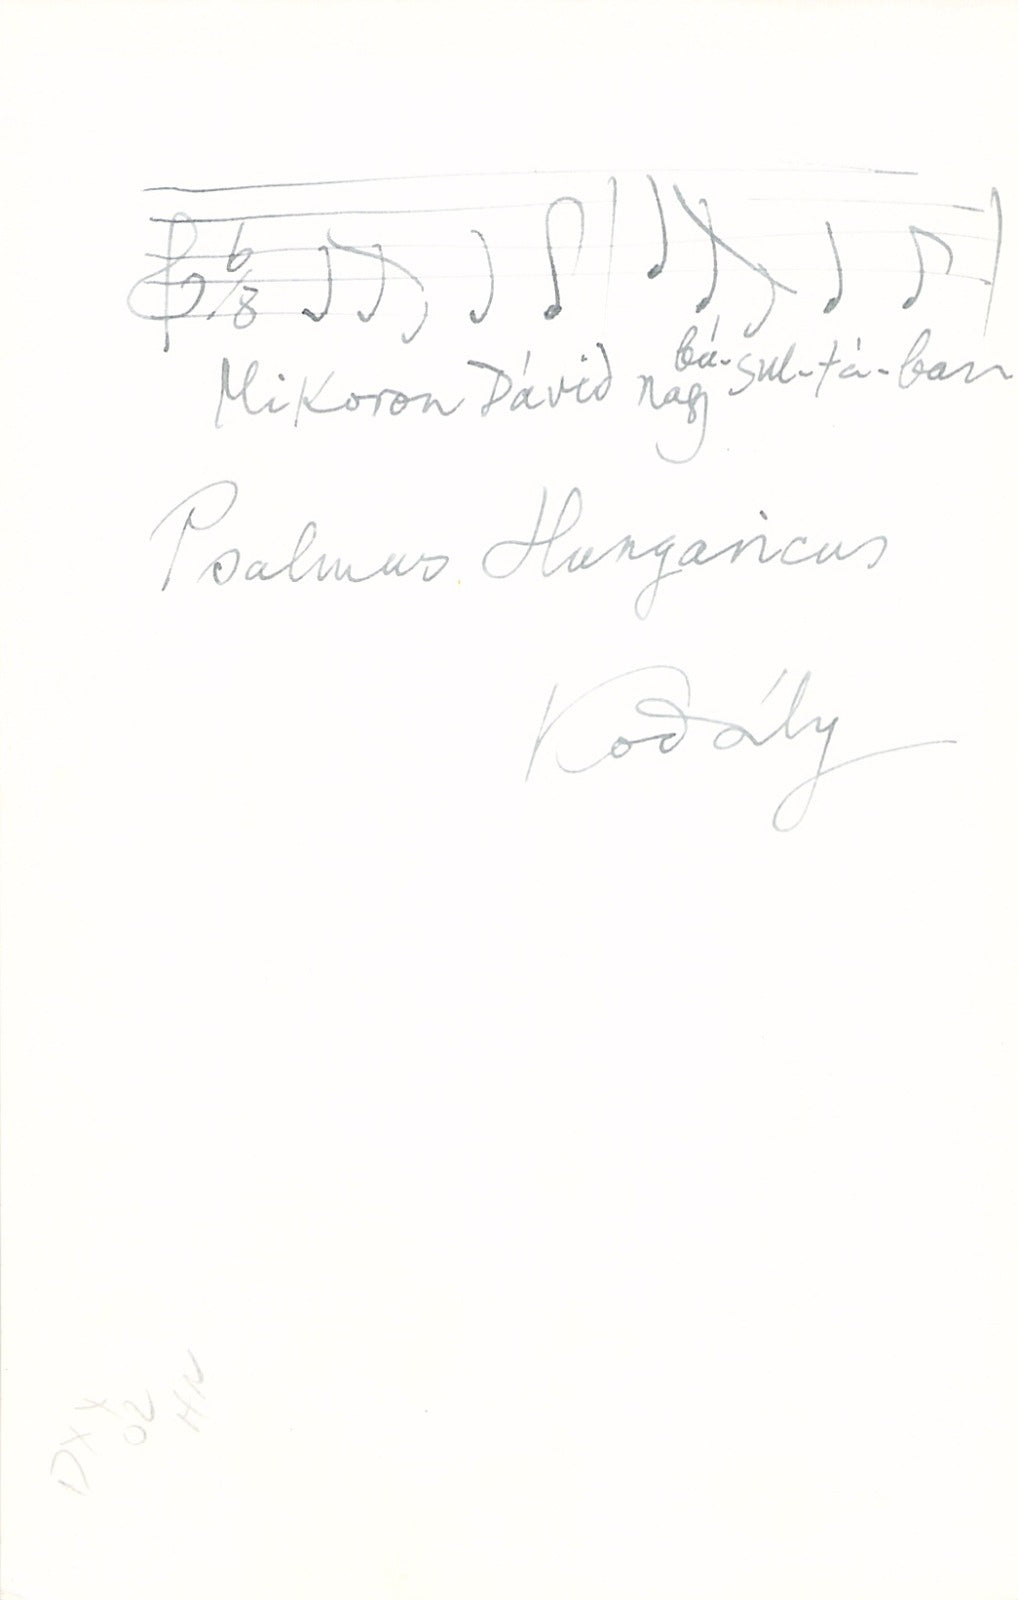 6/8
Mikoron Dávid nagy bú-sul-tá-ban
Psalmus Hungaricus
Kodály
DXX
02
HN